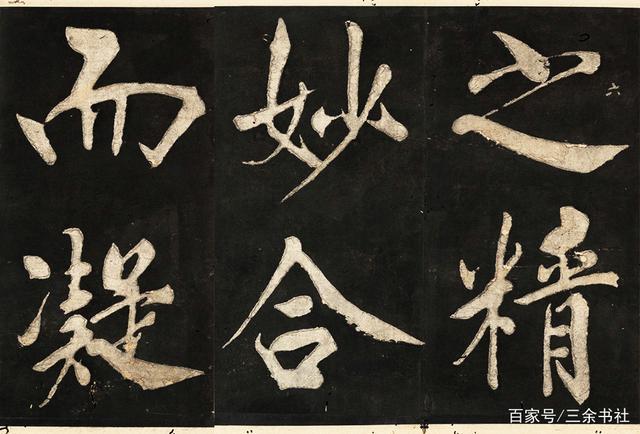 之精
妙合
而凝
六
百家号/三余书社